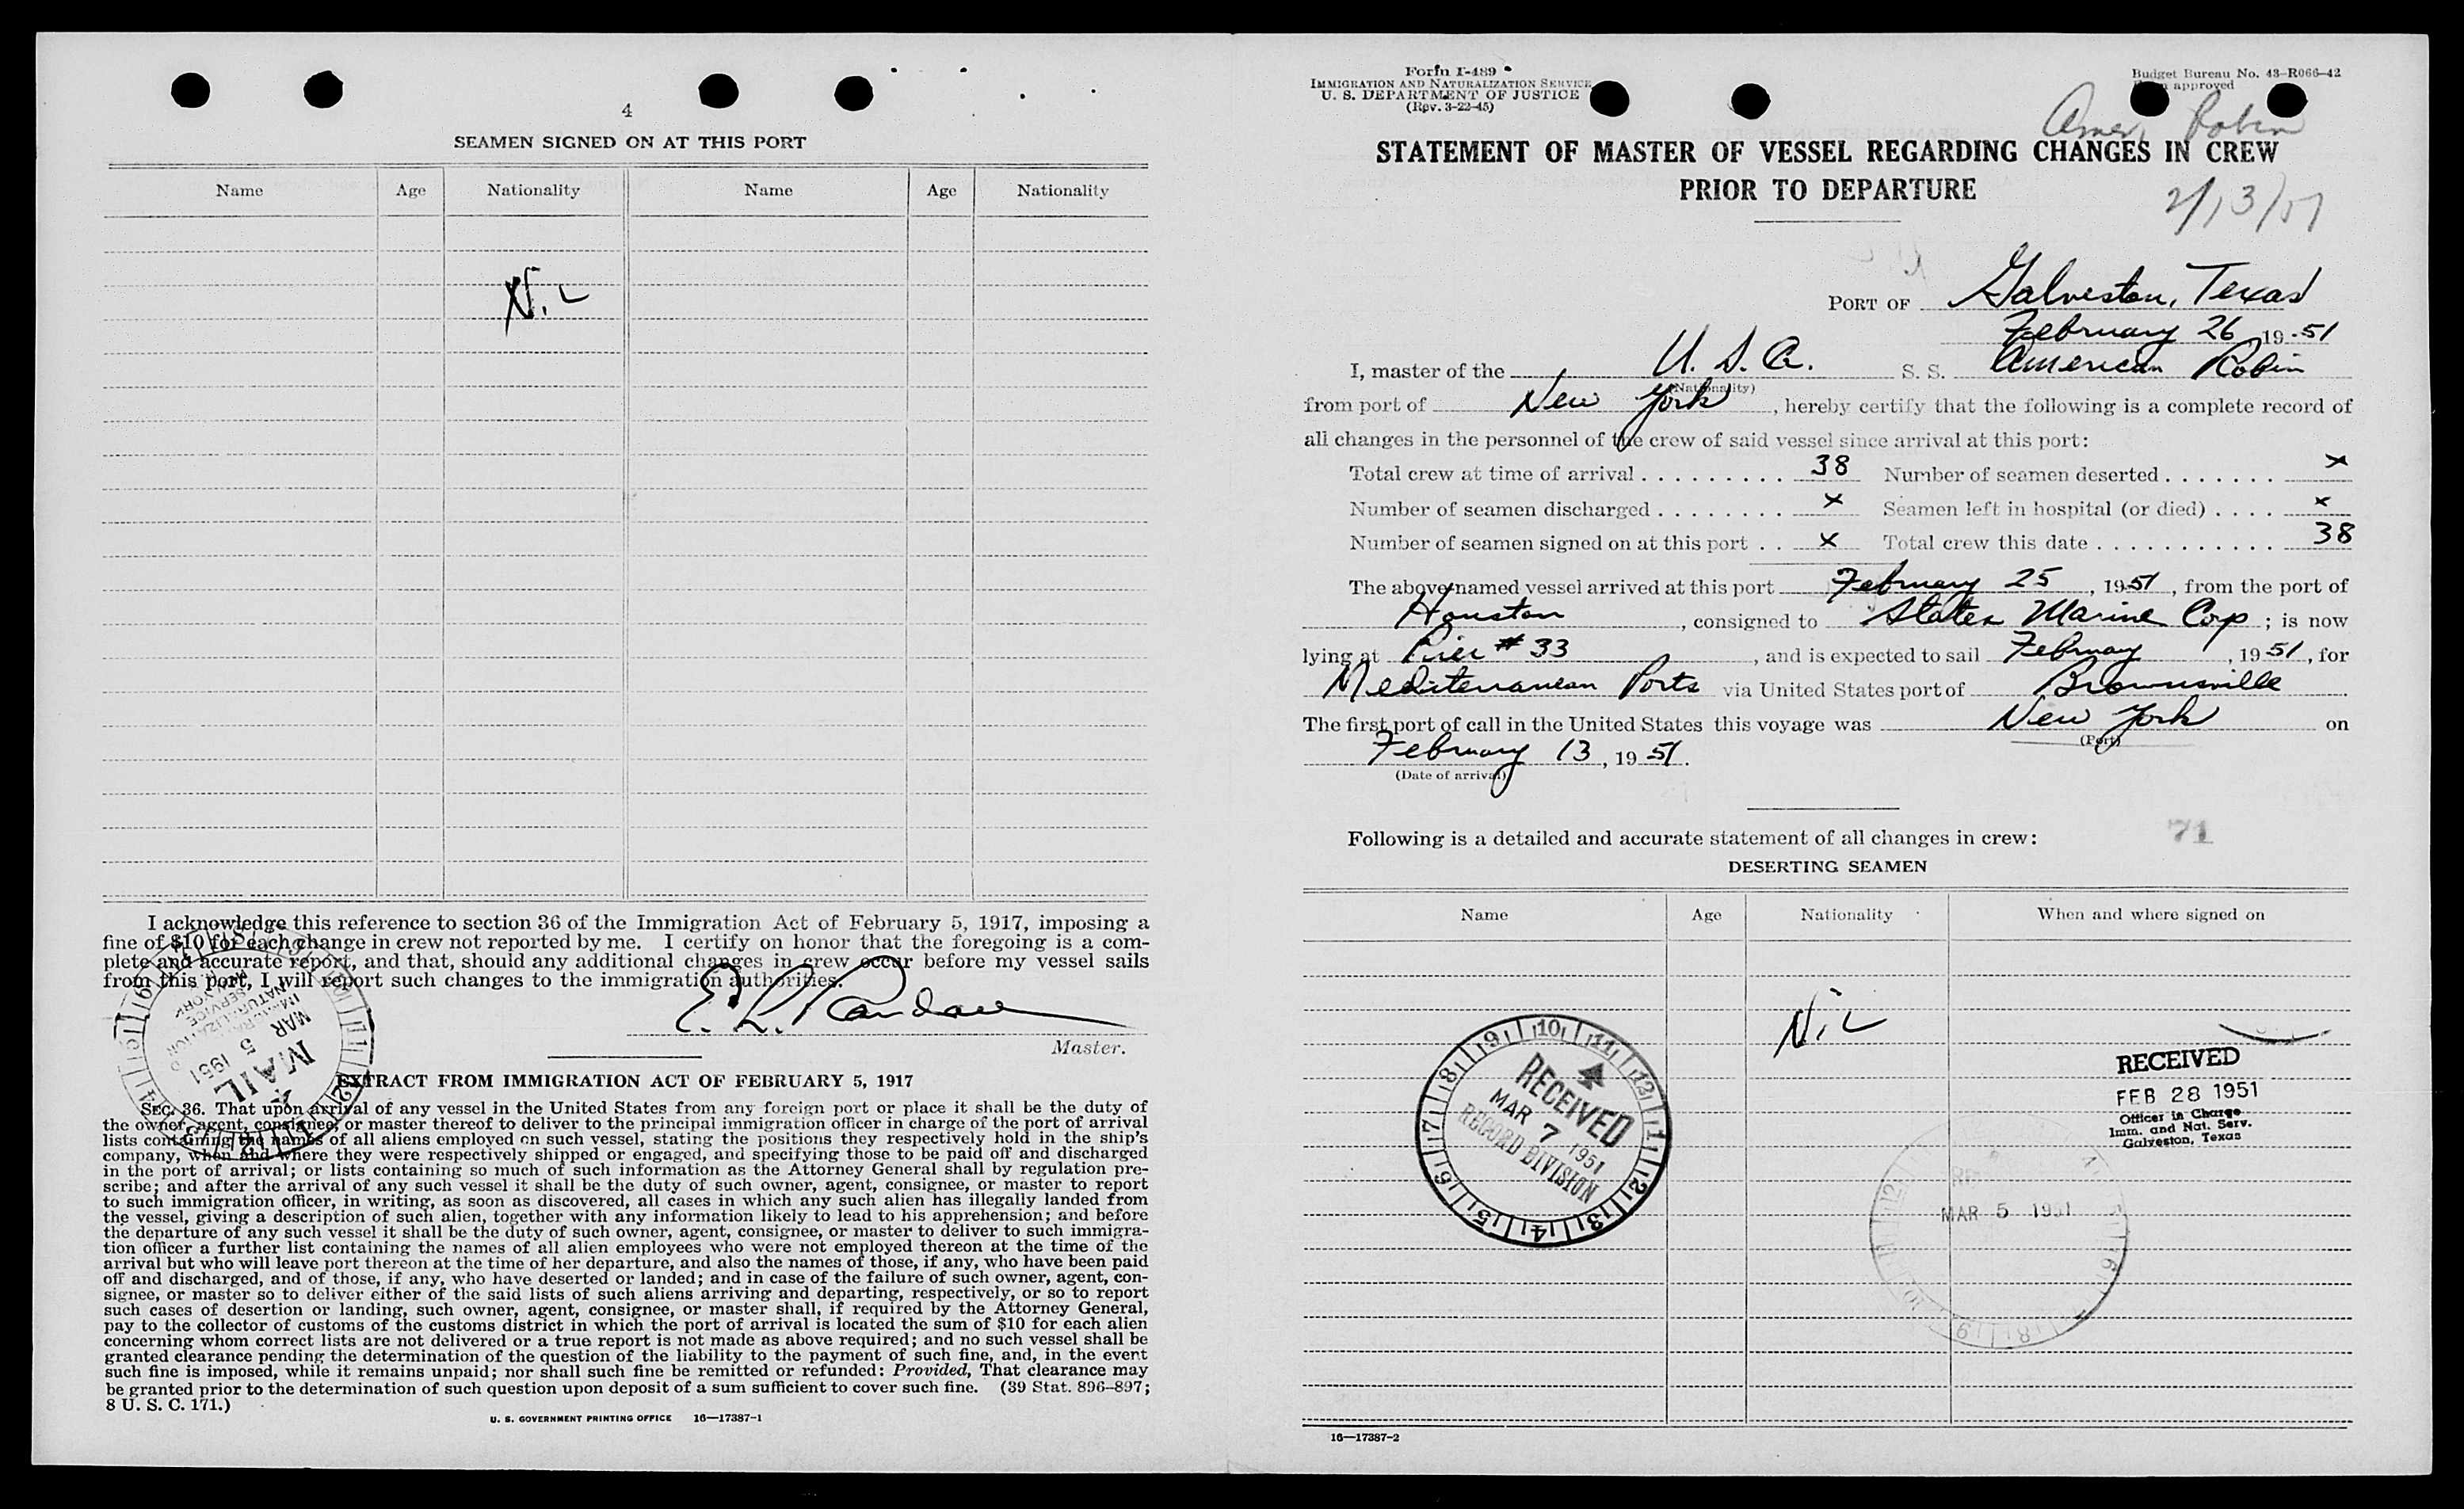 4
SEAMEN SIGNED ON AT THIS PORT
Name Age Nationality Name Age Nationality
Nil
I acknowledge this reference to section 36 of the Immigration Act of February 5, 1917, imposing a
fine of $10 for each change in crew not reported by me. I certify on honor that the foregoing is a com-
plete and accurate report, and that, should any additional changes in crew occur before my vessel sails
from this port, I will report such changes to the immigration authorities.
Master.
MAIL
MAR 5 1951
EXTRACT FROM IMMIGRATION ACT OF FEBRUARY 5, 1917
SEC. 36. That upon arrival of any vessel in the United States from any foreign port or place it shall be the duty of
the owner, agent, consignee, or master thereof to deliver to the principal immigration officer in charge of the port of arrival
lists containing the names of all aliens employed on such vessel, stating the positions they respectively hold in the ship's
company, when and where they were respectively shipped or engaged, and specifying those to be paid off and discharged
in the port of arrival; or lists containing so much of such information as the Attorney General shall by regulation pre-
scribe; and after the arrival of any such vessel it shall be the duty of such owner, agent, consignee, or master to report
to such immigration officer, in writing, as soon as discovered, all cases in which any such alien has illegally landed from
the vessel, giving a description of such alien, together with any information likely to lead to his apprehension; and before
the departure of any such vessel it shall be the duty of such owner, agent, consignee, or master to deliver to such immigra-
tion officer a further list containing the names of all alien employees who were not employed thereon at the time of the
arrival but who will leave port thereon at the time of her departure, and also the names of those, if any, who have been paid
off and discharged, and of those, if any, who have deserted or landed; and in case of the failure of such owner, agent, con-
signee, or master so to deliver either of the said lists of such aliens arriving and departing, respectively, or so to report
such cases of desertion or landing, such owner, agent, consignee, or master shall, if required by the Attorney General,
pay to the collector of customs of the customs district in which the port of arrival is located the sum of $10 for each alien
concerning whom correct lists are not delivered or a true report is not made as above required; and no such vessel shall be
granted clearance pending the determination of the question of the liability to the payment of such fine, and, in the event
such fine is imposed, while it remains unpaid; nor shall such fine be remitted or refunded: Provided, That clearance may
be granted prior to the determination of such question upon deposit of a sum sufficient to cover such fine. (39 Stat. 896–897;
8 U. S. C. 171.)
U. S. GOVERNMENT PRINTING OFFICE 16—17387-1
Form I-489
IMMIGRATION AND NATURALIZATION SERVICE
U. S. DEPARTMENT OF JUSTICE
(Rev. 3-22-45)
Budget Bureau No. 43–R066–42
approved
Amer. Robin
STATEMENT OF MASTER OF VESSEL REGARDING CHANGES IN CREW
PRIOR TO DEPARTURE
2/13/51
PORT OF Galveston, Texas
February 26 19 51
I, master of the U. S. A. S. S. American Robin
(Nationality)
from port of New York, hereby certify that the following is a complete record of
all changes in the personnel of the crew of said vessel since arrival at this port:
Total crew at time of arrival . . . . . . . . . 38 Number of seamen deserted . . . . . . . x
Number of seamen discharged . . . . . . . . x Seamen left in hospital (or died) . . . . x
Number of seamen signed on at this port . . x Total crew this date . . . . . . . . . . . . 38
The above-named vessel arrived at this port February 25, 1951, from the port of
Houston, consigned to States Marine Corp; is now
lying at Pier # 33, and is expected to sail February, 1951, for
Mediterranean Ports via United States port of Brownsville.
The first port of call in the United States this voyage was New York on
(Port)
February 13, 1951.
(Date of arrival)
Following is a detailed and accurate statement of all changes in crew: 71
DESERTING SEAMEN
Name Age Nationality When and where signed on
Nil
RECEIVED
MAR 7 1951
RECORD DIVISION
RECEIVED
FEB 28 1951
Officer in Charge
Imm. and Nat. Serv.
Galveston, Texas
MAR 5 1951
16—17387-2